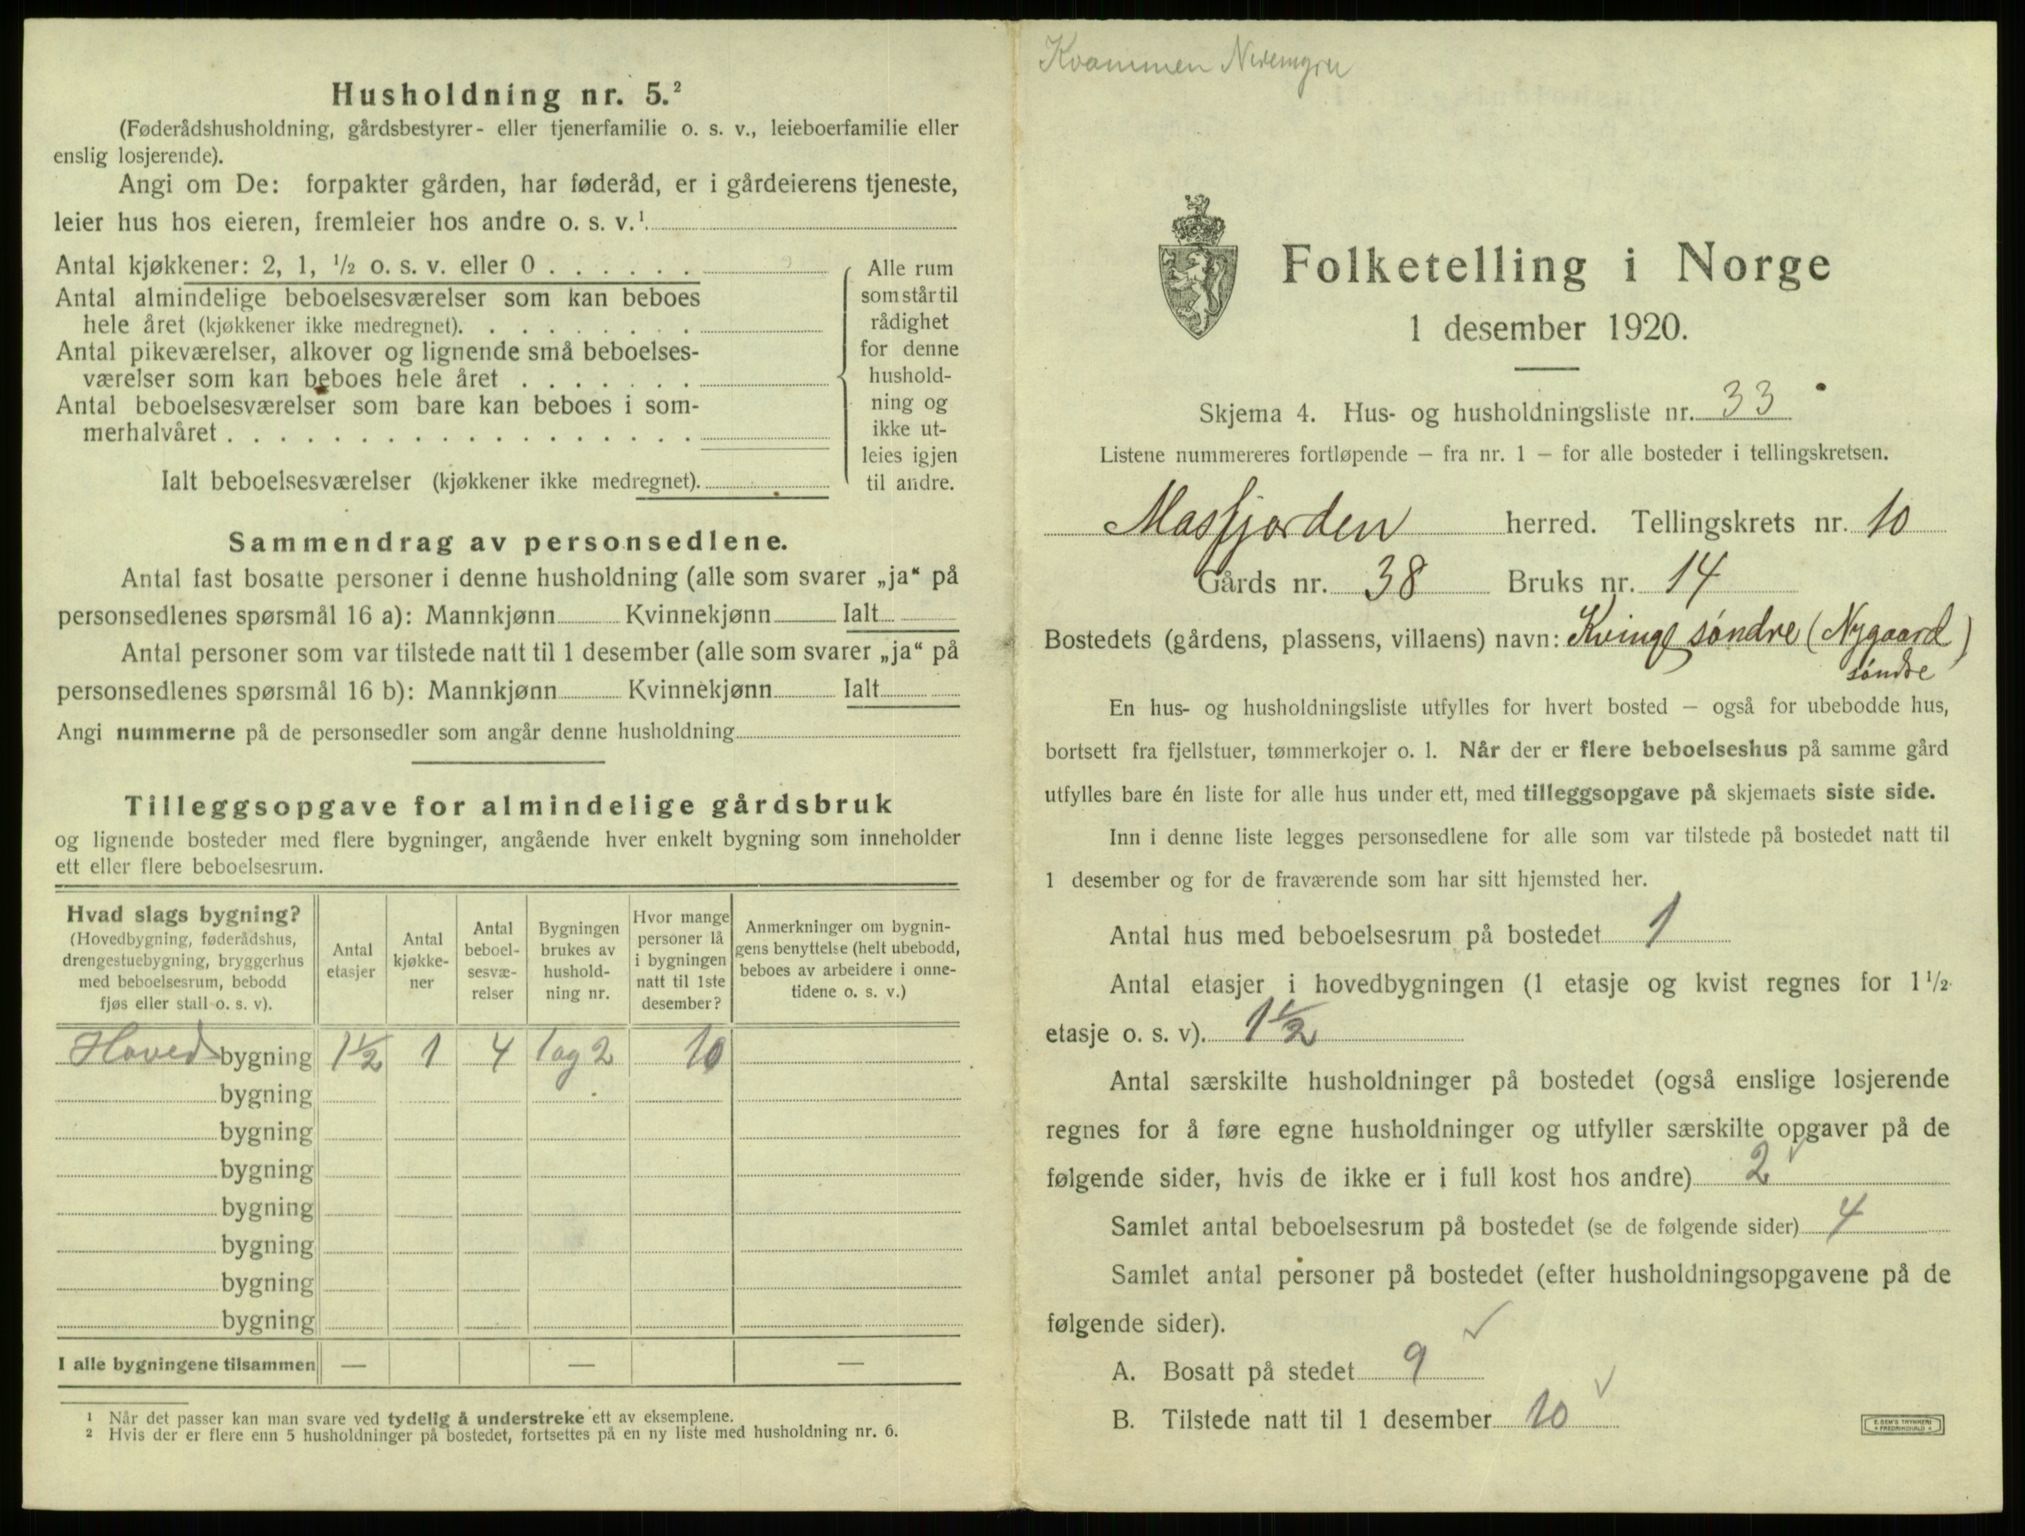 Husholdning nr. 5.²
(Føderådshusholdning, gårdsbestyrer- eller tjenerfamilie o. s. v., leieboerfamilie eller
enslig losjerende).
Angi om De: forpakter gården, har føderåd, er i gårdeierens tjeneste,
leier hus hos eieren, fremleier hos andre o. s. v.¹
Antal kjøkkener: 2, 1, ½ o. s. v. eller 0 . . . . . .
Antal almindelige beboelsesværelser som kan beboes
hele året (kjøkkener ikke medregnet). . . . . . . . .
Antal pikeværelser, alkover og lignende små beboelses-
værelser som kan beboes hele året . . . . . . .
Antal beboelsesværelser som bare kan beboes i som-
merhalvåret . . . . . . . . . . . . . . . . . .
Ialt beboelsesværelser (kjøkkener ikke medregnet).
Alle rum
som står til
rådighet
for denne
hushold-
ning og
ikke ut-
leies igjen
til andre.
Sammendrag av personsedlene.
Antal fast bosatte personer i denne husholdning (alle som svarer „ja“ på
personsedlenes spørsmål 16 a): Mannkjønn Kvinnekjønn Ialt
Antal personer som var tilstede natt til 1 desember (alle som svarer „ja“ på
personsedlenes spørsmål 16 b): Mannkjønn Kvinnekjønn Ialt
Angi nummerne på de personsedler som angår denne husholdning
Tilleggsopgave for almindelige gårdsbruk
og lignende bosteder med flere bygninger, angående hver enkelt bygning som inneholder
ett eller flere beboelsesrum.
Hvad slags bygning?
(Hovedbygning, føderådshus,
drengestuebygning, bryggerhus
med beboelsesrum, bebodd
fjøs eller stall o. s. v).
Antal
etasjer
Antal
kjøkke-
ner
Antal
beboel-
sesvæ-
relser
Bygningen
brukes av
hushold-
ning nr.
Hvor mange
personer lå
i bygningen
natt til 1ste
desember?
Anmerkninger om bygnin-
gens benyttelse (helt ubebodd,
beboes av arbeidere i onne-
tidene o. s. v.)
Hoved bygning 1½ 1 4 1 og 2 10
bygning
bygning
bygning
bygning
bygning
bygning
bygning
I alle bygningene tilsammen — — —
¹ Når det passer kan man svare ved tydelig å understreke ett av eksemplene.
² Hvis der er flere enn 5 husholdninger på bostedet, fortsettes på en ny liste med husholdning nr. 6.
Kvammen
Folketelling i Norge
1 desember 1920.
Skjema 4. Hus- og husholdningsliste nr. 33
Listene nummereres fortløpende — fra nr. 1 — for alle bosteder i tellingskretsen.
Masfjorden herred. Tellingskrets nr. 10
Gårds nr. 38 Bruks nr. 14
Bostedets (gårdens, plassens, villaens) navn: Kvinge søndre (Nygaard)
søndre
En hus- og husholdningsliste utfylles for hvert bosted — også for ubebodde hus,
bortsett fra fjellstuer, tømmerkojer o. l. Når der er flere beboelseshus på samme gård
utfylles bare én liste for alle hus under ett, med tilleggsopgave på skjemaets siste side.
Inn i denne liste legges personsedlene for alle som var tilstede på bostedet natt til
1 desember og for de fraværende som har sitt hjemsted her.
Antal hus med beboelsesrum på bostedet 1
Antal etasjer i hovedbygningen (1 etasje og kvist regnes for 1½
etasje o. s. v). 1½
Antal særskilte husholdninger på bostedet (også enslige losjerende
regnes for å føre egne husholdninger og utfyller særskilte opgaver på de
følgende sider, hvis de ikke er i full kost hos andre) 2
Samlet antal beboelsesrum på bostedet (se de følgende sider) 4
Samlet antal personer på bostedet (efter husholdningsopgavene på de
følgende sider).
A. Bosatt på stedet 9
B. Tilstede natt til 1 desember 10